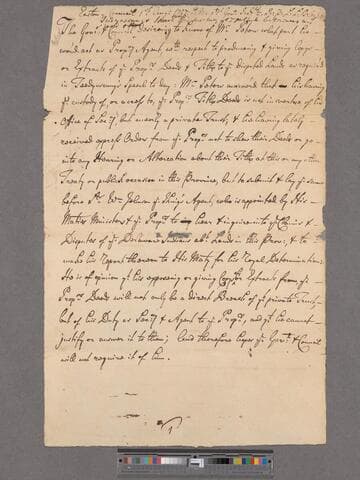 The Gov.r & Council desireing to know of Mr. Peters what part he
would act as Prop.rs Agent with respect to producing & giving Copys
or Extracts of ye Prop.rs Deeds & Titles to ye disputed Lands as required
in Teedyuscung's Speech to day: Mr. Peters answered that his having
ye custody of, or access to, ye Prop.rs Title Deeds is not in vertue of his
Office of Sec.ry but meerly a private Trust, & his having lately
received express Orders from ye Prop.rs not to shew their Deeds or go
into any Hearing or Altercation about their Titles at this or any other
Treaty or publick occasion in this Province, but to submit & lay ye same
before Sr. Wm. Johnson ye King's Agent, who is appointed by His
Maties Ministers & ye Prop.rs to hear & inquire into ye Claims &
Disputes of ye Delaware Indians abt. Lands in this Prov: & to
make his Report thereon to His Maty for his Royal Determination:
He is of opinion yt his exposing or giving Copys or Extracts from ye
Prop.rs Deeds will not only be a direct Breach of ye private Trust
but of his Duty as Sec.ry & Agent to ye Prop.rs, and yt he cannot
justify or answer it to them; And therefore hopes ye Gov.r & Council
will not require it of him.